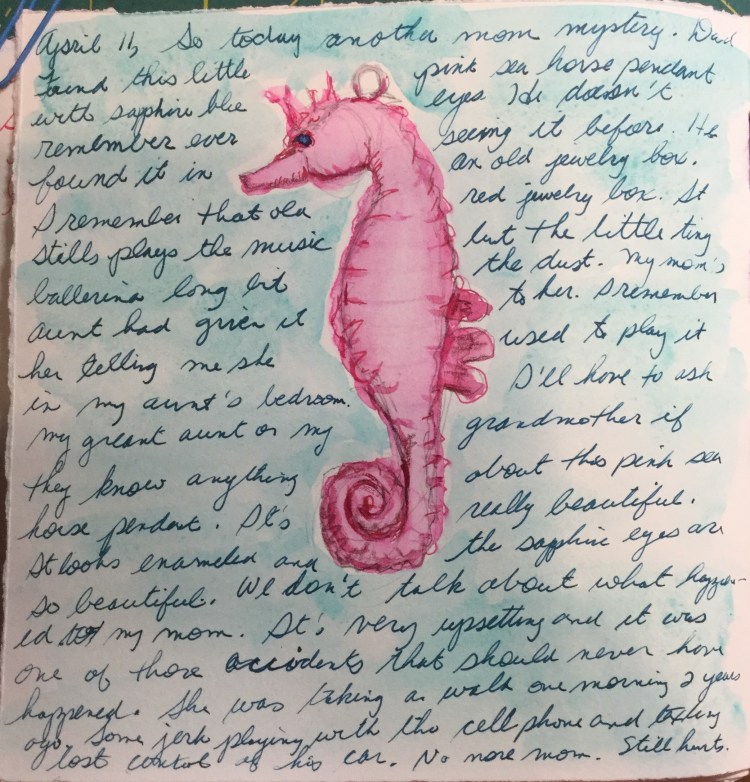 April 11, So today another mom mystery. Dad
found this little pink sea horse pendant
with sapphire blue eyes He doesn't
remember ever seeing it before. He
found it in an old jewelry box.
I remember that old red jewelry box. It
Stills plays the music but the little tiny
ballerina long bit the dust. My mom's
aunt had given it to her. I remember
her telling me she used to play it
in my aunt's bedroom. I'll have to ask
my greant aunt or my grandmother if
they know anything about this pink sea
horse pendant. It's really beautiful.
It looks enameled and the sapphire eyes are
so beautiful. We don't talk about what happen-
ed to my mom. It's very upsetting and it was
one of those accidents that should never have
happened. She was taking a walk one morning 2 years
ago. Some jerk playing with the cell phone and texting
lost control of his car. No more mom. Still hurts.